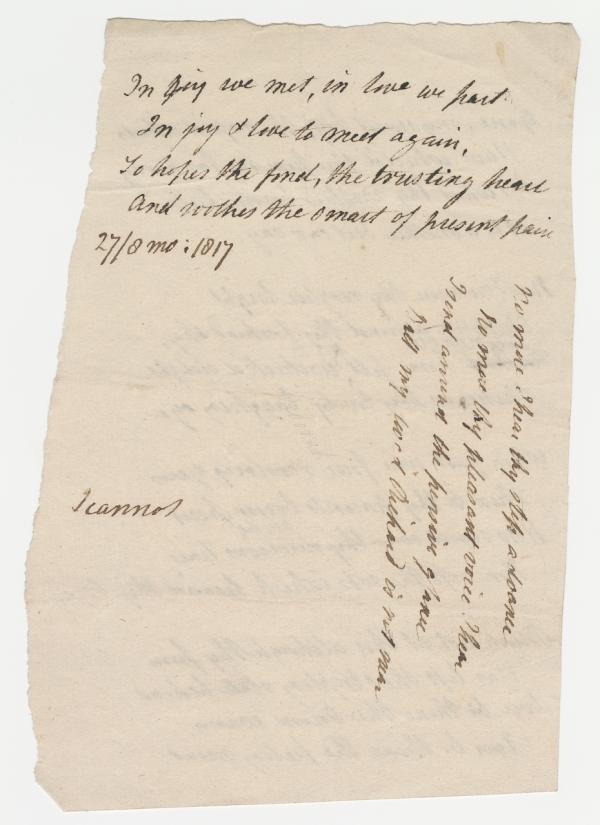 In joy we met, in love we part
In joy & love to meet again,
So hopes the fond, the trusting heart
And soothes the smart of present pain
27/8 mo: 1817
No more I hear thy step advance
No more thy pleasant voice I hear
I send around the pensive glance
But my lov'd Richard is not near
I cannot